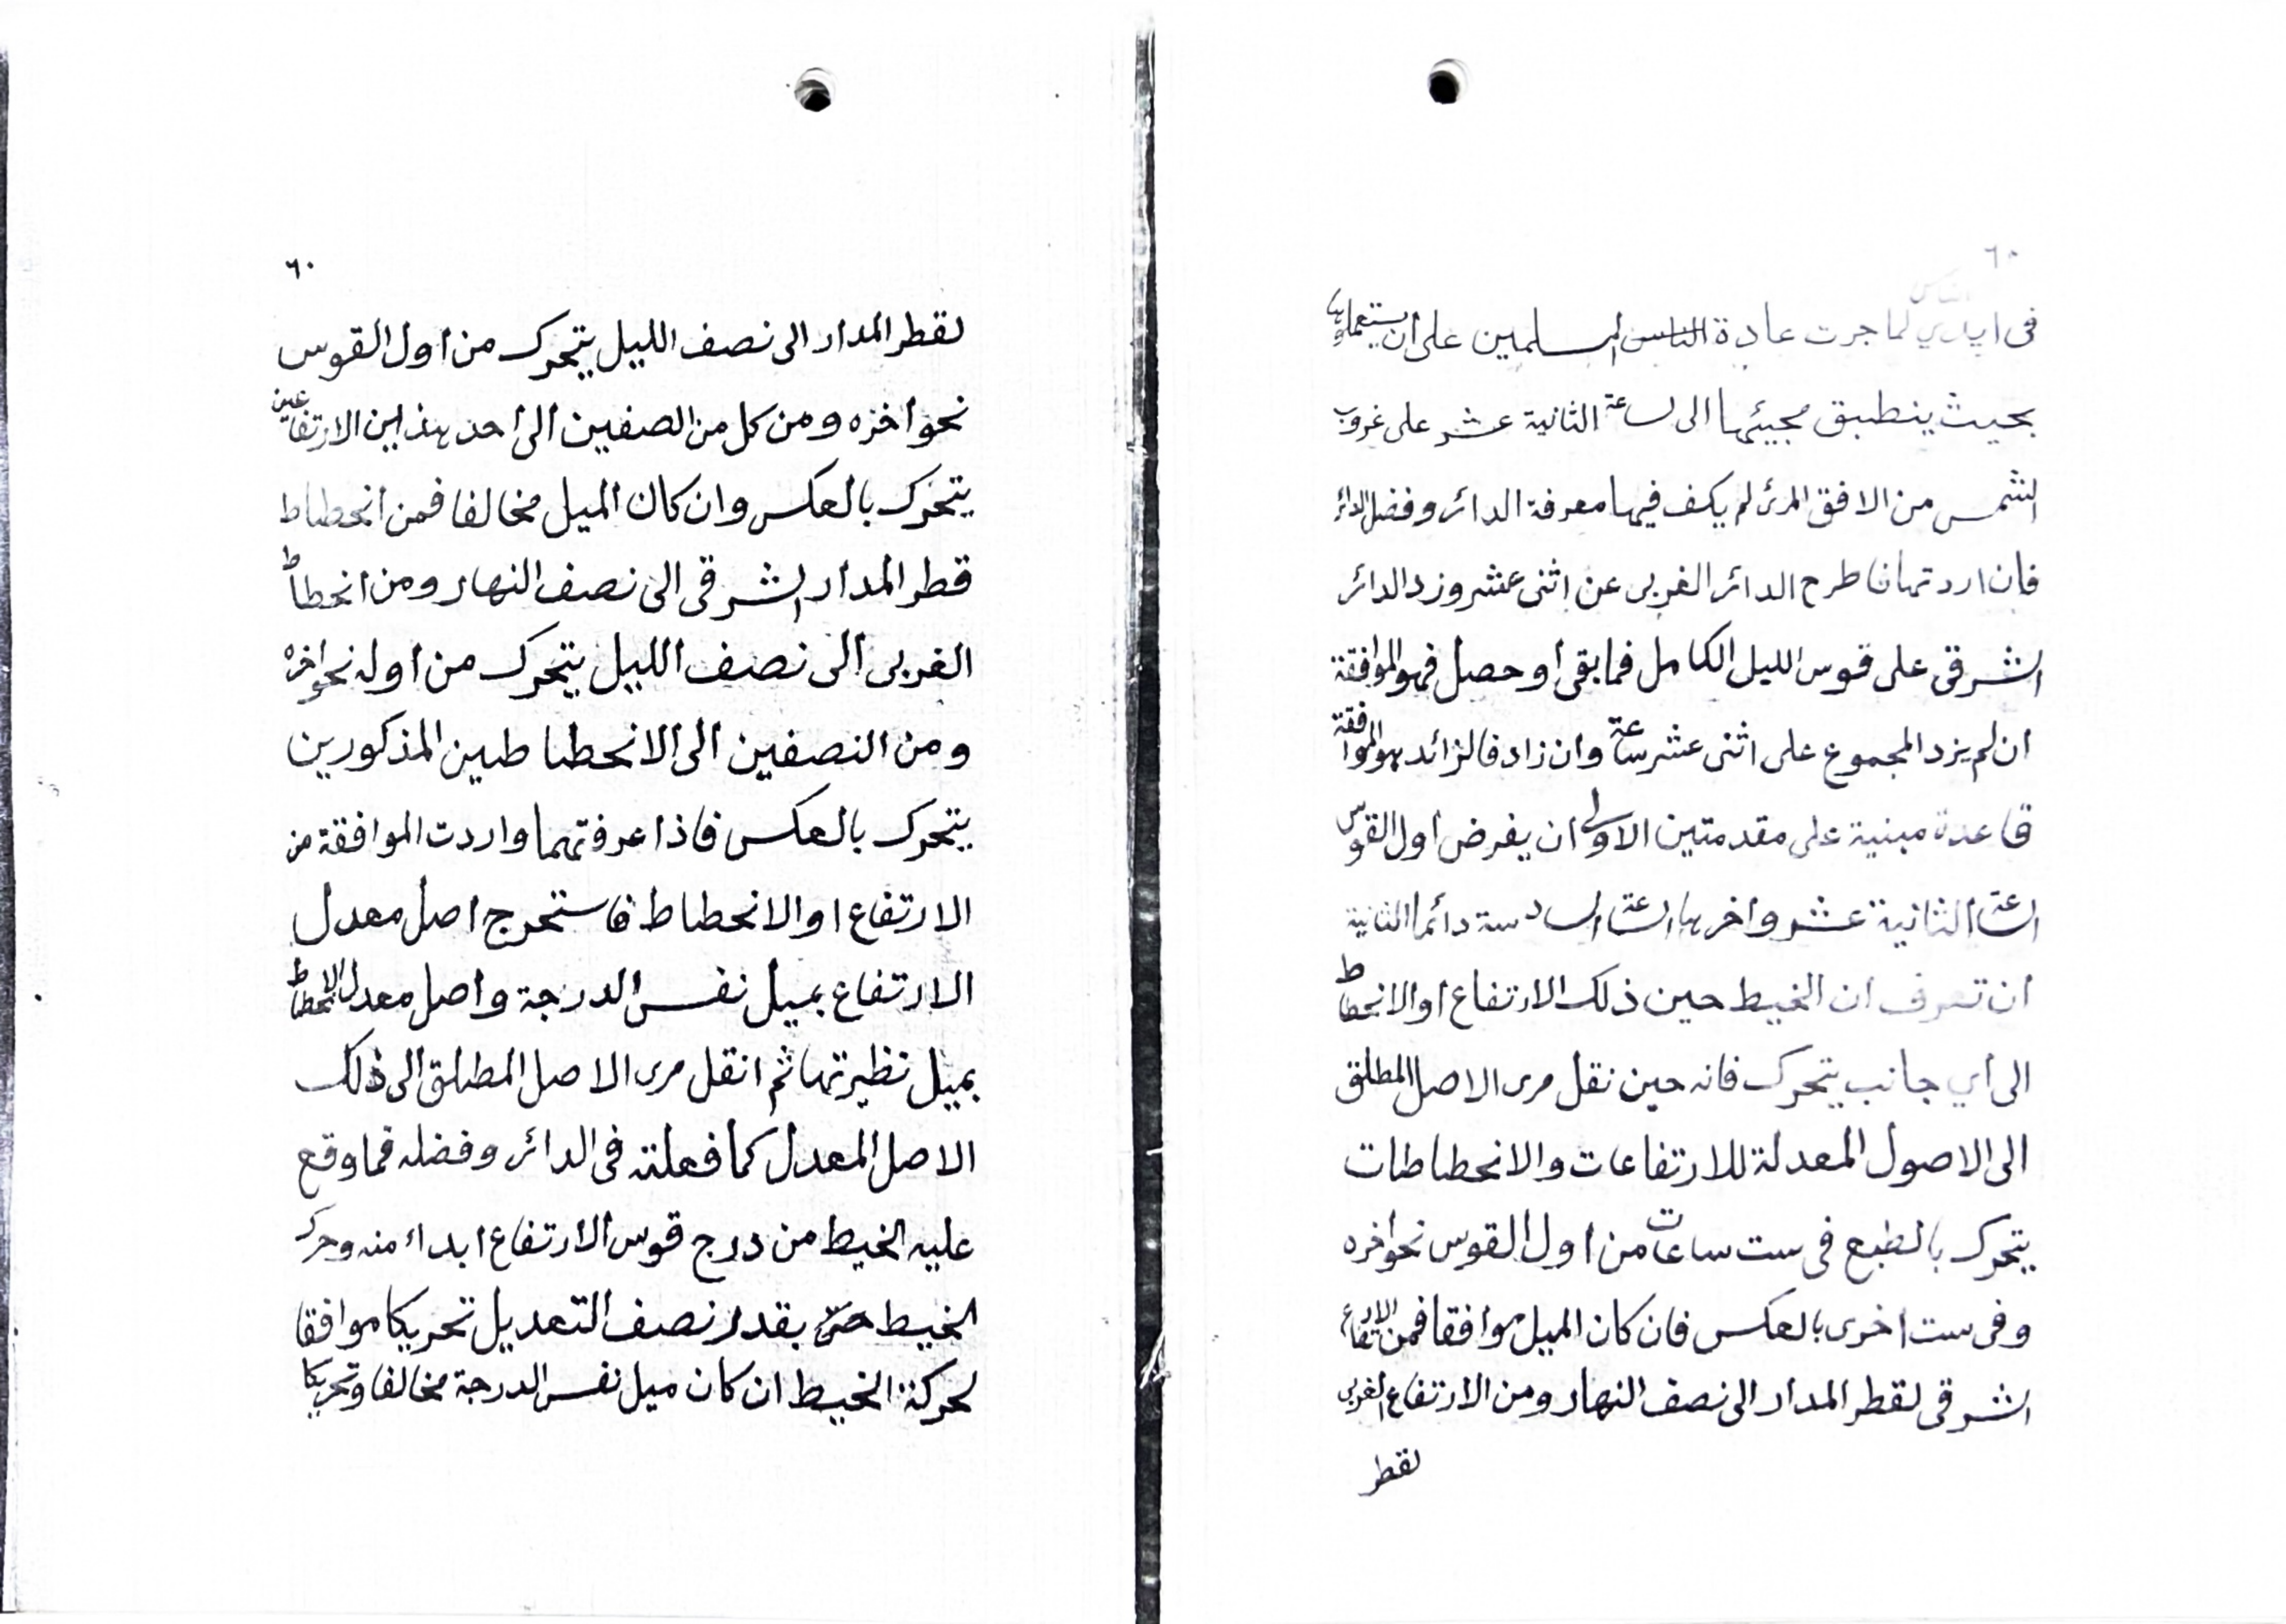 ٦٠
فى ايدي لما جرت عادة الناس المسلمين على ان يستعملوها
بحيث ينطبق مجيئها الى لساعة الثانية عشر على غروب
الشمس من الافق المرئ لم يكف فيها معرفة الدائر وفضل الدائر
فان اردتها فاطرح الدائر الغربى عن اثنى عشر وزد الدائر
الشرقى على قوس الليل الكامل فما بقى او حصل فهو الموافقة
ان لم يزد المجموع على اثنى عشر ساعة وان زاد فالزائد هو الموافقة
قاعدة مبنية على مقدمتين الاولى ان يفرض اول القوس
الساعة الثانية عشر واخرها الساعة السادسة دائما الثانية
ان تعرف ان الخيط حين ذلك الارتفاع او الانحطاط
الى أي جانب يتحرك فانه حين نقل مرى الاصل المطلق
الى الاصول المعدلة للارتفاعات والانحطاطات
يتحرك بالطبع فى ست ساعات من اول القوس نحو اخره
وفى ست اخرى بالعكس فان كان الميل موافقا فمن الارتفاع
الشرقى لقطر المدار الى نصف النهار ومن الارتفاع الغربى
لقطر
٦٠
لقطر المدار الى نصف الليل يتحرك من اول القوس
نحو اخره ومن كل من الصفين الى احد هذين الارتفاعين
يتحرك بالعكس وان كان الميل مخالفا فمن انحطاط
قطر المدار الشرقى الى نصف النهار ومن انحطاط
الغربى الى نصف الليل يتحرك من اوله نحو اخره
ومن النصفين الى الانحطاطين المذكورين
يتحرك بالعكس فاذا عرفتهما واردت الموافقة من
الارتفاع او الانحطاط فاستخرج اصل معدل
الارتفاع بميل نفس الدرجة واصل معدل الانحطاط
بميل نظيرتها ثم انقل مرى الاصل المطلق الى ذلك
الاصل المعدل كما فعلته فى الدائر وفضله فما وقع
عليه الخيط من درج قوس الارتفاع ابداء منه وحرك
الخيط حتى بقدر نصف التعديل تحريكا موافقا
لحركة الخيط ان كان ميل نفس الدرجة مخالفا وتحريكا